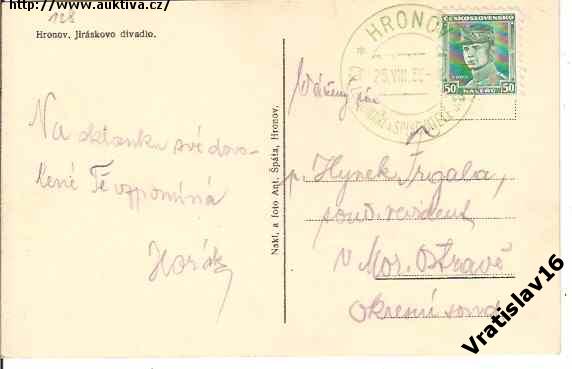 http://www.auktiva.cz/
128
Hronov, Jiráskovo divadlo.
Na sklonku své dovo-
lené Tě vzpomíná
Horák
Nakl. a foto Ant. Špáta, Hronov.
HRONOV
25.VIII.36
ČESKOSLOVENSKO
50 HALÉŘŮ 50
Vážený pán
p. Hynek Trgala,
soud. revident
v Mor. Ostravě
Okresní soud
Vratislav16